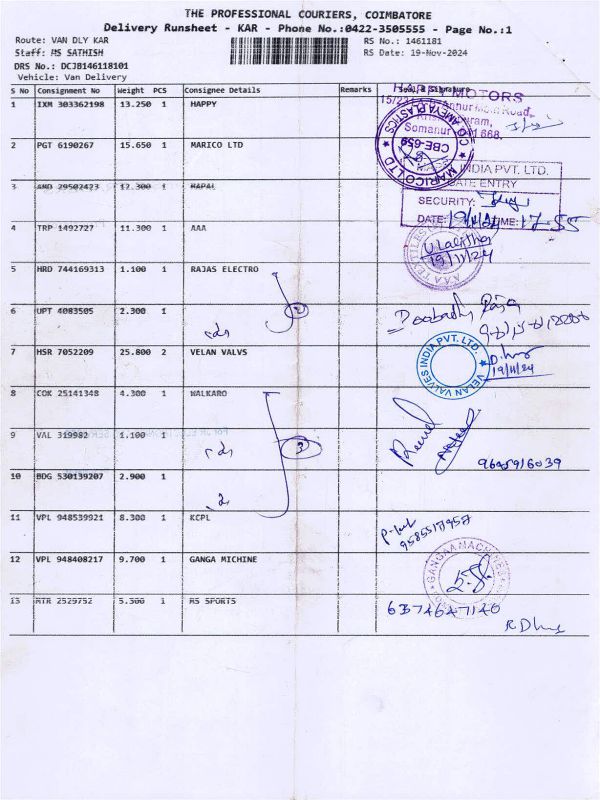 THE PROFESSIONAL COURIERS, COIMBATORE
Delivery Runsheet - KAR - Phone No.:0422-3505555 - Page No.:1
Route: VAN DLY KAR
RS No.: 1461181
Staff: MS SATHISH
RS Date: 19-Nov-2024
DRS No.: DCJB146118101
Vehicle: Van Delivery
S No Consignment No Weight PCS Consignee Details Remarks Seal & Signature
1 IXM 303362198 13.250 1 HAPPY
MOTORS
Road,
Somanur 668.
2 PGT 6190267 15.650 1 MARICO LTD
MARICO LTD
CBE-659
INDIA PVT. LTD.
GATE ENTRY
3 AMD 29502423 12.300 1 RAPAL
SECURITY:
DATE: 19/11/24 TIME: 17-55
4 TRP 1492727 11.300 1 AAA
19/11/24
5 HRD 744169313 1.100 1 RAJAS ELECTRO
6 UPT 4083505 2.300 1
2
7 HSR 7052209 25.800 2 VELAN VALVS
VELAN VALVES INDIA PVT. LTD.
19/11/24
8 COK 25141348 4.300 1 WALKARO
9 VAL 319982 1.100 1
3
9645916039
10 BDG 530139207 2.900 1
11 VPL 948539921 8.300 1 KCPL
9585517957
12 VPL 948408217 9.700 1 GANGA MICHINE
13 MTR 2529752 5.300 1 MS SPORTS
6374647140